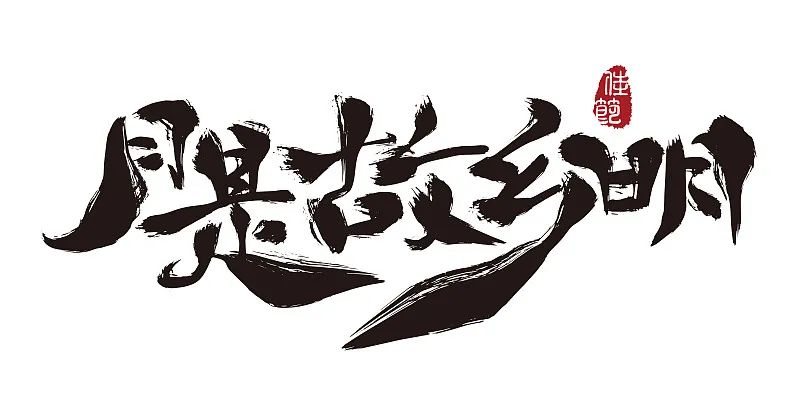 月是故乡明
佳節